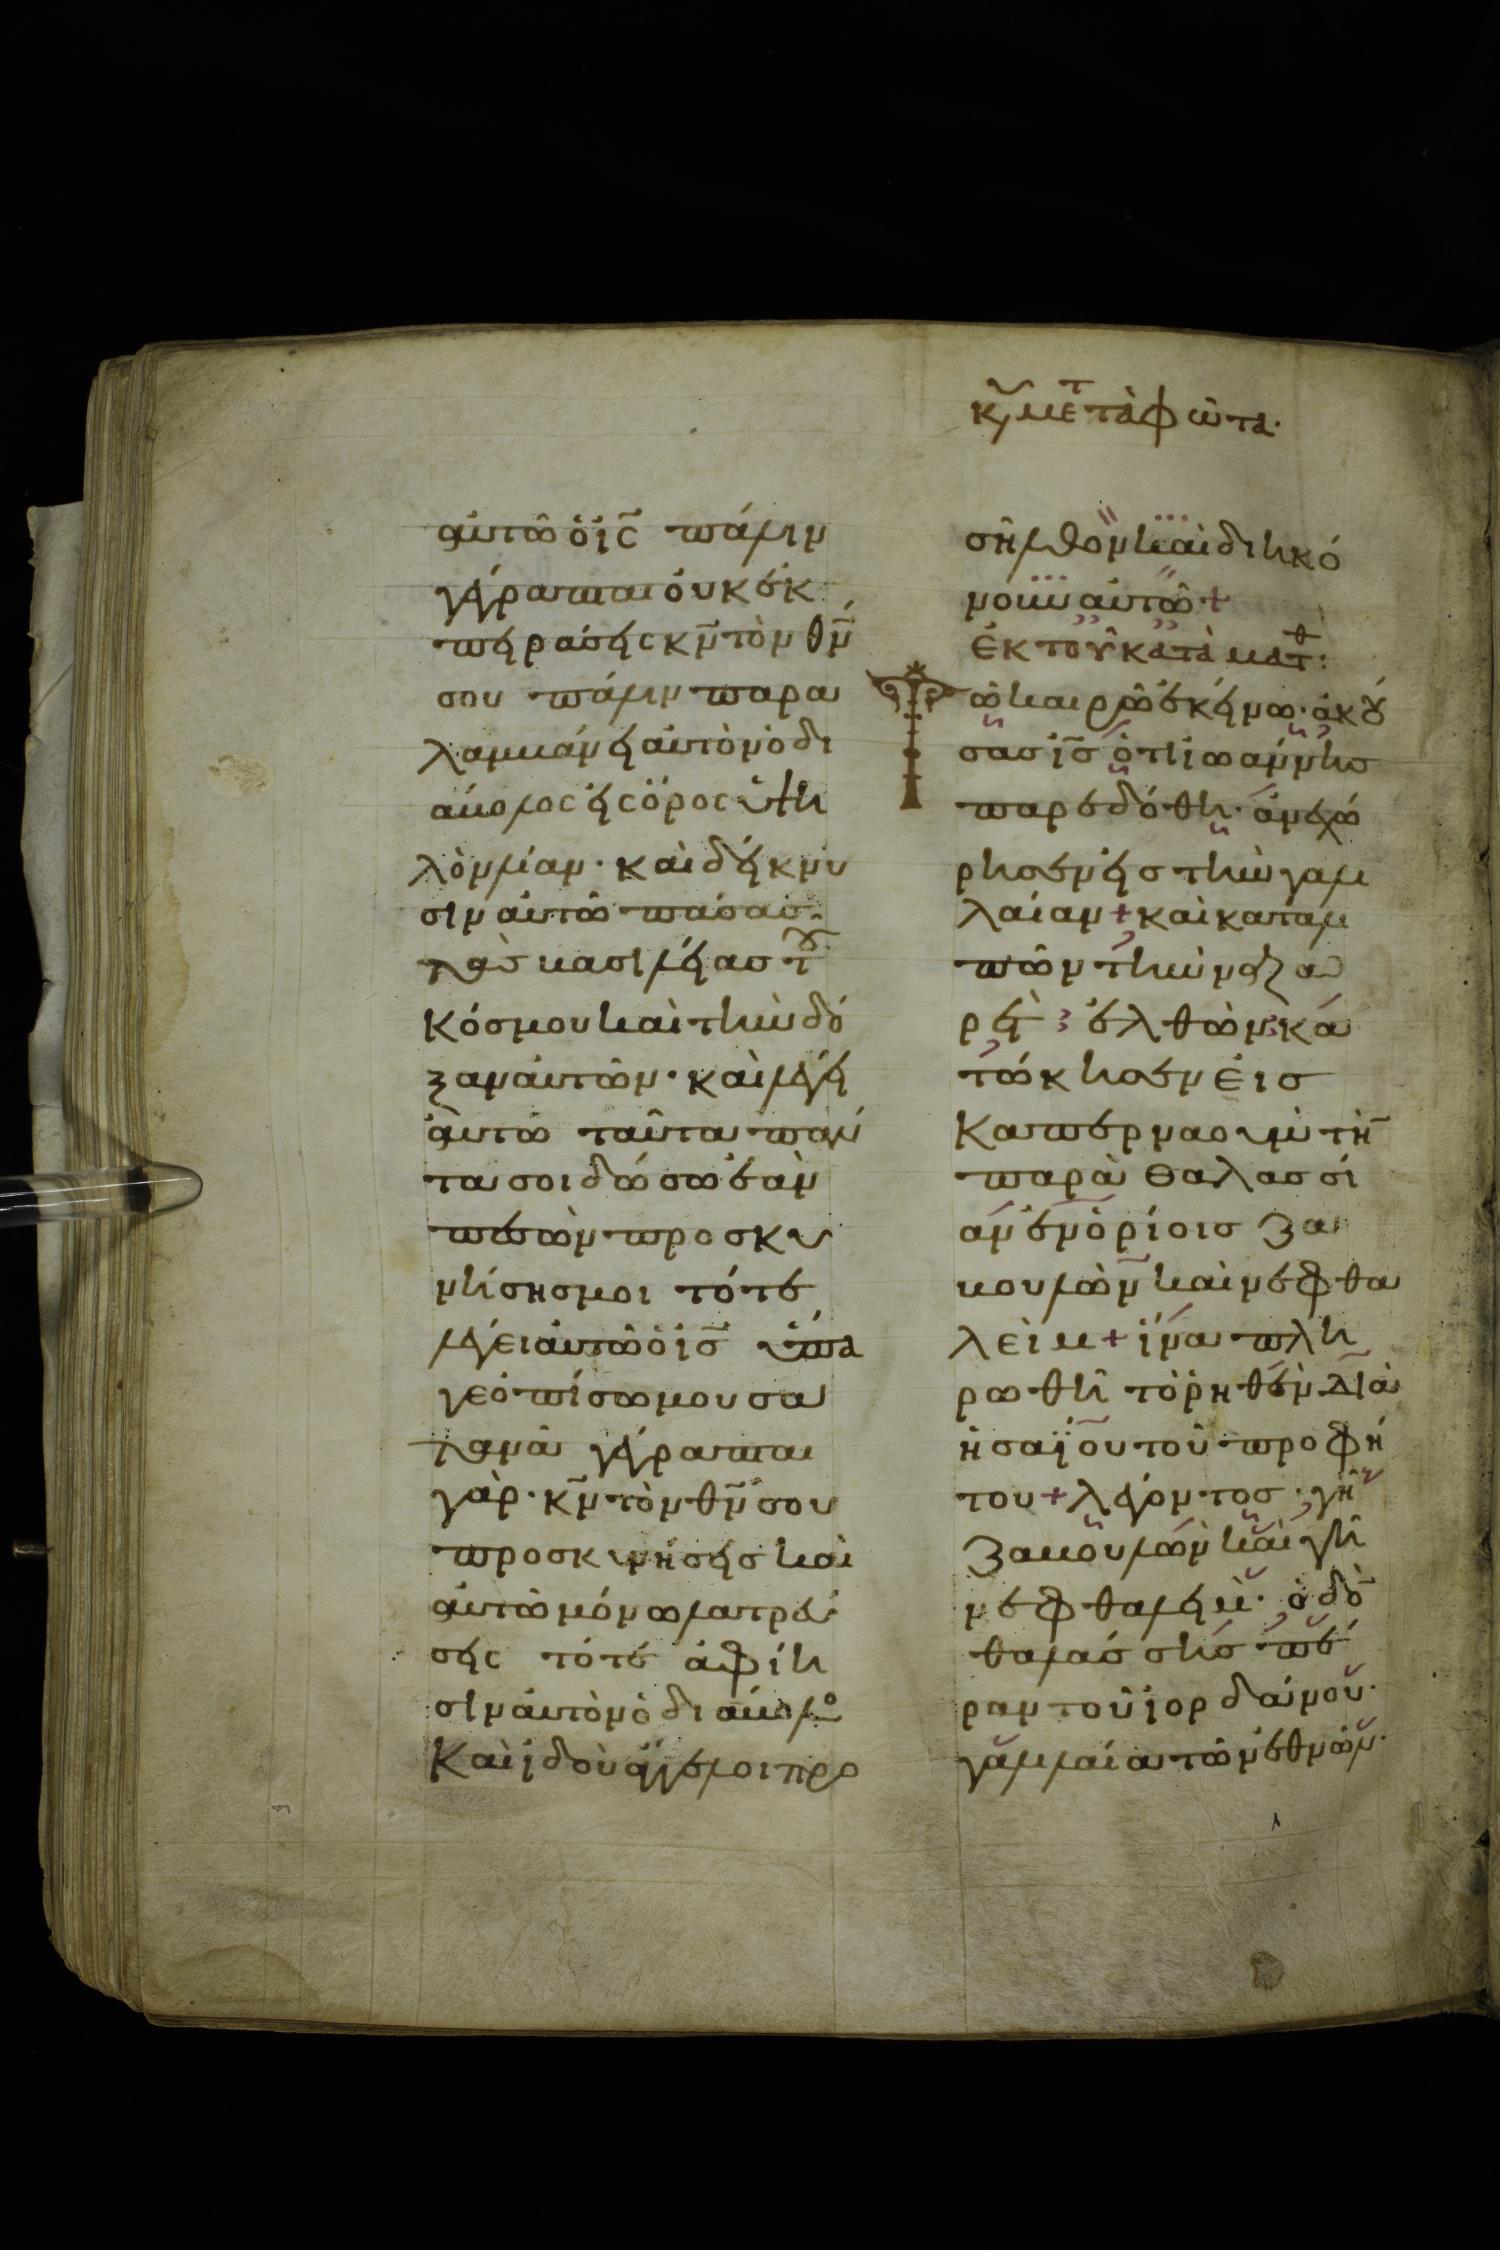 κυ μετ τὰ φῶτα·
αὐτῶ ὁ ις πάλιν
γέγραπται οὐκ ἐκ
πειράσεις κν τὸν θν
σου πάλιν παρα
λαμβάνει αὐτὸν ὁ δι
άβολος εἰς ὄρος ὑψη
λὸν λίαν· καὶ δείκνυ
σιν αὐτῶ πάσας
τὰς βασιλείας τοῦ
κόσμου καὶ τὴν δό
ξαν αὐτῶν· καὶ λέγει
αὐτῶ ταῦτα πάν
τα σοι δώσω ἐὰν
πεσὼν προσκυ
νήσησ μοι τότε
λέγει αὐτῶ ὁ ισ ὕπα
γε ὀπίσω μου σα
τανᾶ γέγραπται
γὰρ· κν τὸν θν σου
προσκυνήσεισ καὶ
αὐτῶ μόνω λατρεύ
σεις τότε ἀφίη
σιν αὐτὸν ὁ διάβολο
καὶ ἰδοὺ ἄγγελοι προ
σῆλθον καὶ διηκό
νουν αὐτῶ +
ἐκ τοῦ κατὰ ματθ:
Τῶ καιρῶ ἐκείνω· ἀκού
σασ ισ ὅτι ἰωάννησ
παρεδόθη· ἀνεχώ
ρησεν εἰσ τὴν γαλι
λαίαν + καὶ καταλι
πὼν τὴν ναζα
ρὲτ ἐλθὼν κα
τώκησεν εἰσ
καπερναοὺμ τὴν
παρὰ θαλασσί
αν ἐν ὁρίοισ ζα
βουλὼν καὶ νεφθα
λεὶμ + ἵνα πλη
ρωθῆ τὸ ῥηθὲν διὰ
ἡσαΐου τοῦ προφή
του + λέγοντοσ· γῆ
ζαβουλὼν καὶ γῆ
νεφθαλείμ· ὁδὸν
θαλάσσησ πέ
ραν τοῦ ἰορδάνου·
γαλιλαία τῶν ἐθνῶν·